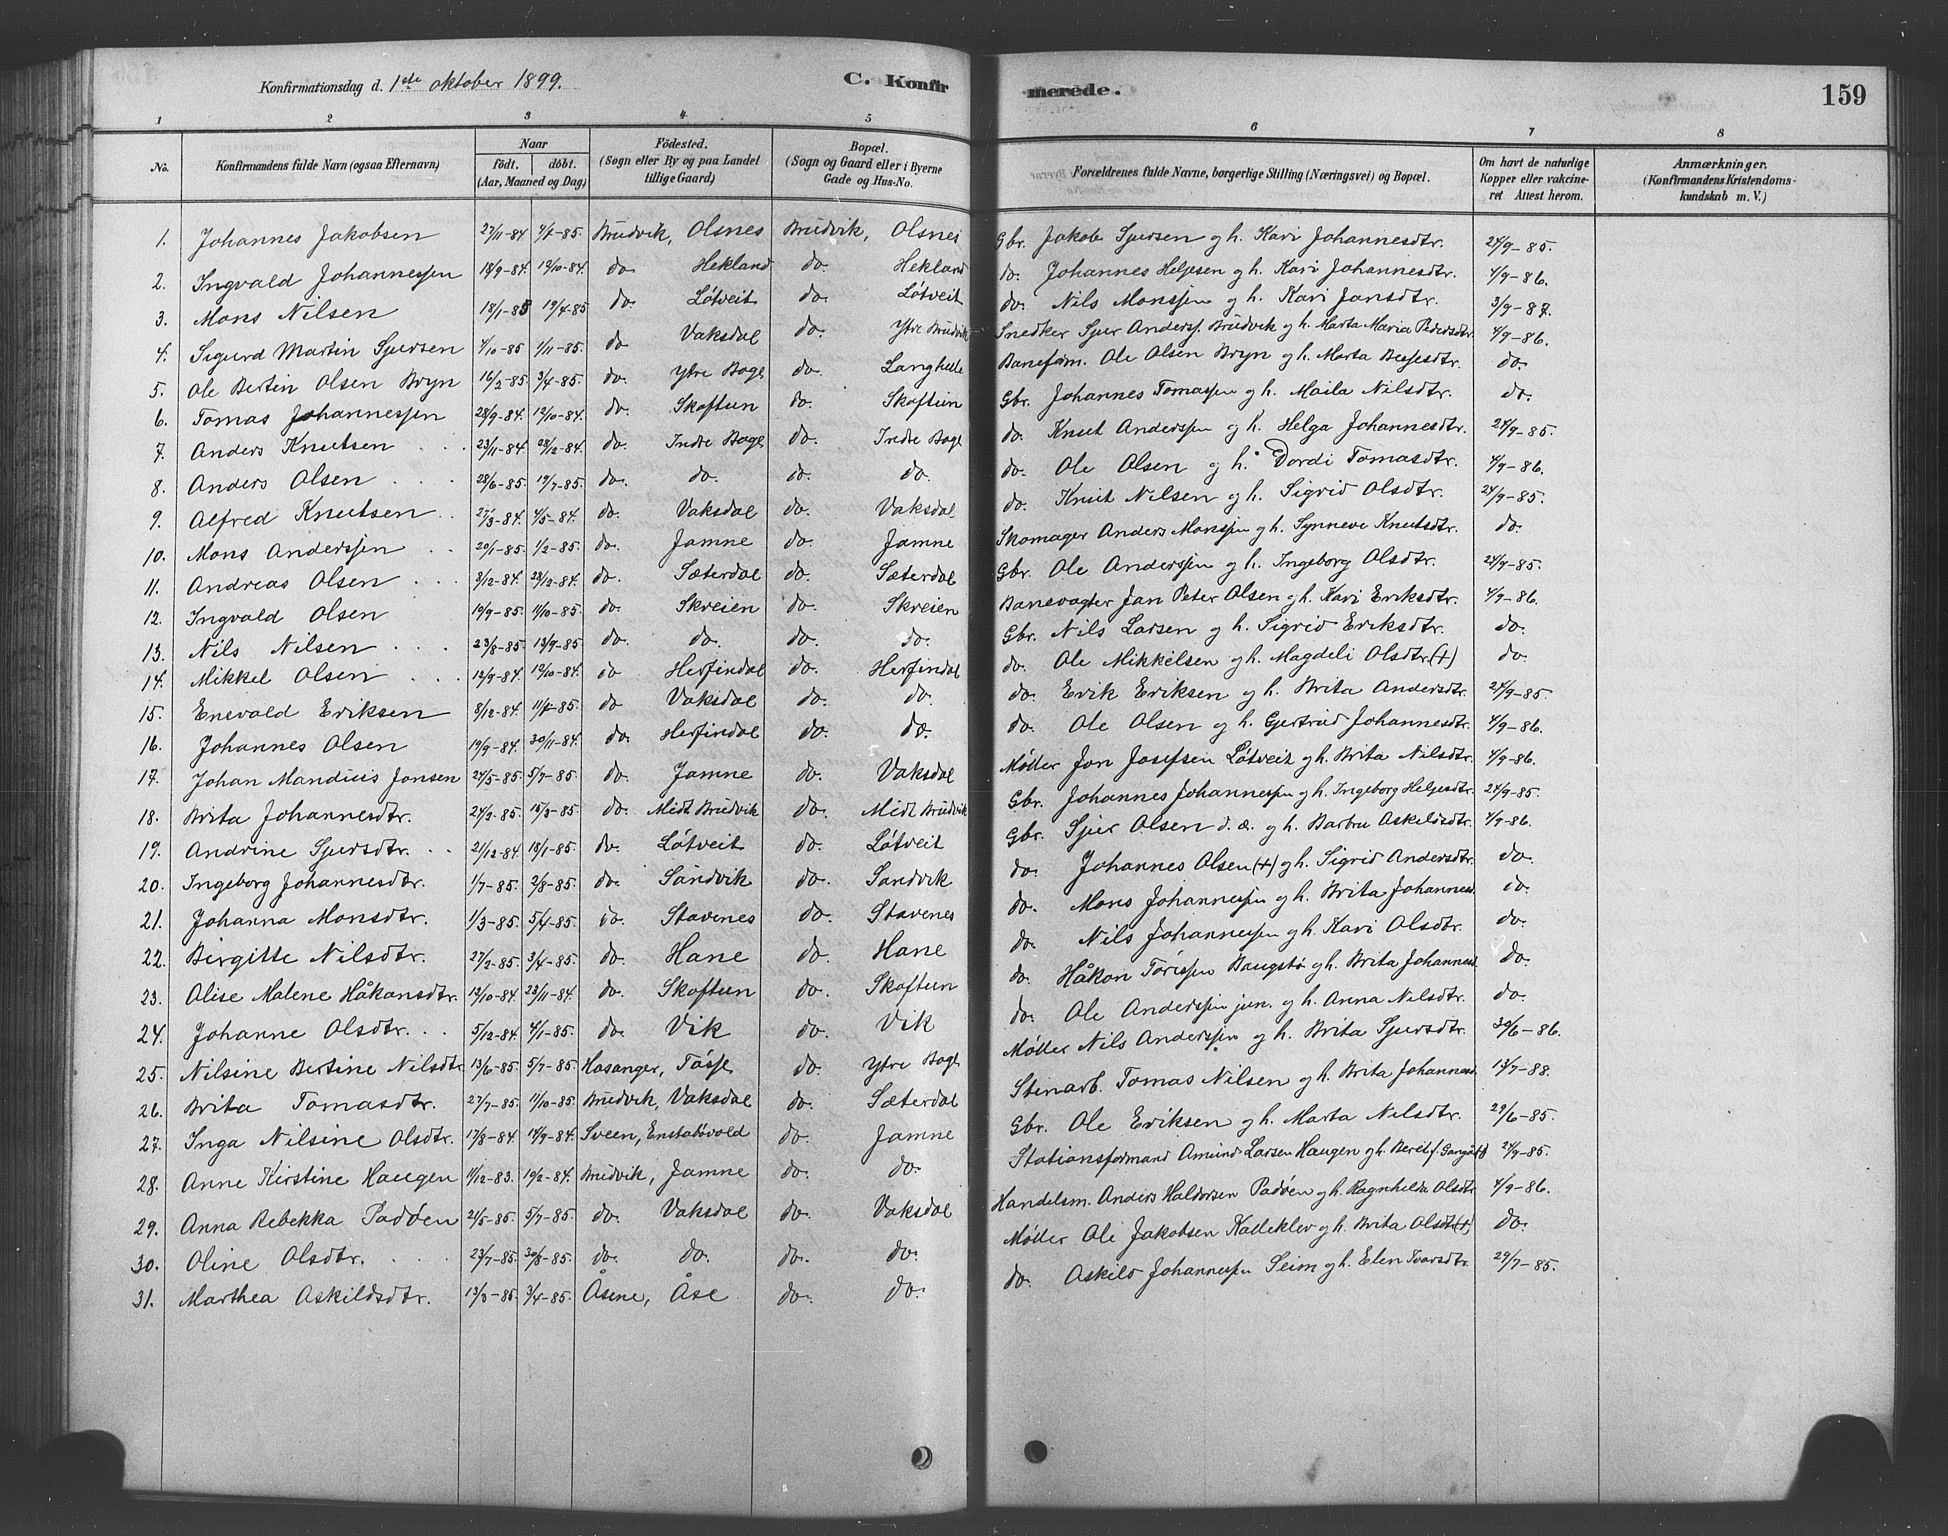 Konfirmationsdag d. 1ste oktober 1899. C. Konfirmerede. 159
1 2 3 4 5 6 7 8
No. Konfirmandens fulde Navn (ogsaa Efternavn) Naar födt. döbt. (Aar, Maaned og Dag) Födested. (Sogn eller By og paa Landet tillige Gaard) Bopæl. (Sogn og Gaard eller i Byerne Gade og Hus-No. Forældrenes fulde Navne, borgerlige Stilling (Næringsvei) og Bopæl. Om havt de naturlige Kopper eller vakcineret Attest herom. Anmærkninger. (Konfirmandens Kristendomskundskab m. V.)
1. Johannes Jakobsen 27/11-84 4/1-85. Brudvik, Olsnes Brudvik, Olsnes Gbr. Jakob Sjursen g h. Kari Johannesdtr. 24/9-85.
2. Ingvald Johannessen 18/9-84. 19/10-84. do Hekland do. Hekland do. Johannes Helgesen g h. Kari Johannesdtr. 4/9-86.
3. Mons Nilsen 18/1-85 19/4-85 do Lötveit do Lötveit do. Nils Monssen g h. Kari Jansdtr. 3/9-87.
4. Sigurd Martin Sjursen 4/10-85 1/11-85. do Vaksdal do. Ytre Brudvik Snedker Sjur Anderss. Brudvik g h. Marta Maria Pedersdtr. 4/9-86.
5. Ole Bertin Olsen Bryn 16/2-85 3/4-85. do. Ytre Boge do. Langhelle Baneform. Ole Olsen Bryn g h. Marta do.
6. Tomas Johannessen 28/9-84. 12/10-84. do. Skoftun do. Skoftun Gbr. Johannes Tomassen g h. Maila Nilsdtr. do.
7. Anders Knutsen 23/11-84 28/12-84. do. Indre Boge do. Indre Boge do. Knut Anderssen g h. Helga Johannesdtr. 24/9-85.
8. Anders Olsen 28/6-85. 19/7-85. do. do. do. do. do. Ole Olsen g h. Dordi Tomasdtr. 4/9-86.
9. Alfred Knutsen 27/3-84. 4/5-84. do. Vaksdal do. Vaksdal do. Knut Nilsen g h. Sigrid Olsdtr. 24/9-85.
10. Mons Anderssen 20/1-85. 1/2-85. do. Jamne do. Jamne Skomager Anders Monssen g h. Synneve Knutsdtr. do.
11. Andreas Olsen 3/12-84. 28/12-84. do. Sæterdal do. Sæterdal Gbr. Ole Anderssen g h. Ingeborg Olsdtr. 24/9-85.
12. Ingvald Olsen 19/9-85. 11/10-85. do. Skreien do. Skreien Banevogter Jan Peter Olsen g h. Kari Eriksdtr. 4/9-86.
13. Nils Nilsen 23/8-85. 13/9-85 do. do. do. do. Gbr. Nils Larsen g h. Sigrid Eriksdtr. do.
14. Mikkel Olsen 12/9-84. 12/10-84. do Herfindal do. Herfindal do. Ole Mikkelsen g h. Magdeli Olsdtr. (+) do
15. Enevald Eriksen 8/12-84. 11/1-85. do Vaksdal do. do. do. Erik Eriksen g h. Brita Andersdtr. 24/9-85
16. Johannes Olsen 19/9-84. 30/11-84. do. Herfindal do. do. do. Ole Olsen g h. Gjertrud Johannesdtr. 4/9-86.
17. Johan Mandius Jonsen 24/5-85. 5/7-85. do. Jamne do. Vaksdal Möller Jon Josefsen Lötveit g h. Brita Nilsdtr. 4/9-86.
18. Brita Johannesdtr. 24/3-85. 15/3-85. do. Midt Brudvik do. Midt Brudvik Gbr. Johannes Johannessen g h. Ingeborg Helgesdtr. 24/9-85.
19. Andrine Sjursdtr. 21/12-84. 18/1-85. do. Lötveit do. Lötveit Gbr. Sjur Olsen d. æ. g h. Barbru Askildsdtr. 4/9-86.
20. Ingeborg Johannesdtr. 1/7-85. 2/8-85. do. Sandvik do. Sandvik do Johannes Olsen (+) g h. Sigrid Andersdtr. do.
21. Johanna Monsdtr. 1/3-85. 5/4-85. do. Stavenes do. Stavenes do. Mons Johannessen g h. Brita Johannesd. do.
22. Birgitte Nilsdtr. 27/2-85. 3/4-85. do. Hane do. Hane do. Nils Johannessen g h. Kari Olsdtr. do.
23. Olise Malene Håkonsdtr. 12/10-84. 23/11-84. do. Skoftun do. Skoftun do. Håkon Törissen Baugstö g h. Brita Johannesd. do.
24. Johanne Olsdtr. 5/12-84. 4/1-85. do. Vik do. Vik do. Ole Anderssen jun. g h. Anna Nilsdtr. do.
25. Nilsine Bertine Nilsdtr 13/6-85. 5/7-85. Hosanger, Tösse do. Ytre Boge Möller Nils Anderssen g h. Brita Sjursdtr. 30/6-86.
26. Brita Tomasdtr. 27/7-85. 11/10-85. Brudvik, Vaksdal do. Sæterdal Stenarb. Tomas Nilsen g h. Brita Johannesd. 13/7-88.
27. Inga Nilsine Olsdtr. 17/8-84. 14/9-84. Sveen, do. Jamne Gbr. Ole Eriksen g h. Marta Nilsdtr. 29/6-85.
28. Anne Kirstine Haugen 11/12-83. 10/2-84. Brudvik, Jamne do. do. Stationsformand Amund Larsen Haugen g h. Berit 24/9-85.
29. Anna Rebekka Padöen 21/5-85. 5/7-85. do. Vaksdal do. Vaksdal Handelsm. Anders Haldorsen Padöen g h. Ragnhilda Olsdtr 4/9-86.
30. Oline Olsdtr. 23/7-85. 30/8-85. do. do. do. do. Möller Ole Jakobsen Kalleklev g h. Brita Olsdtr. (+) do.
31. Marthea Askildsdtr. 13/3-85. 3/4-85. Åsene, Åse do. do. do. Askild Johannessen Seim g h. Elen Ivarsdtr. 29/7-85.